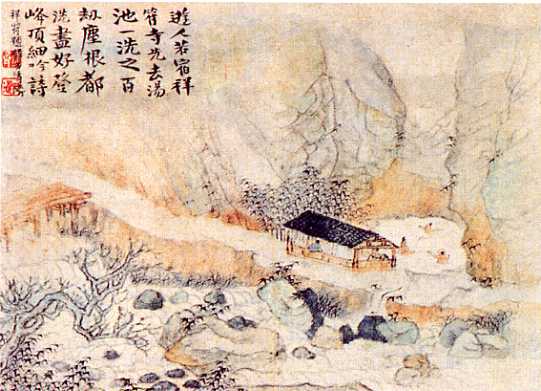 遊人若宿祥
符寺先去湯
池一洗之百
劫塵根都
洗盡好登
峰頂細吟詩